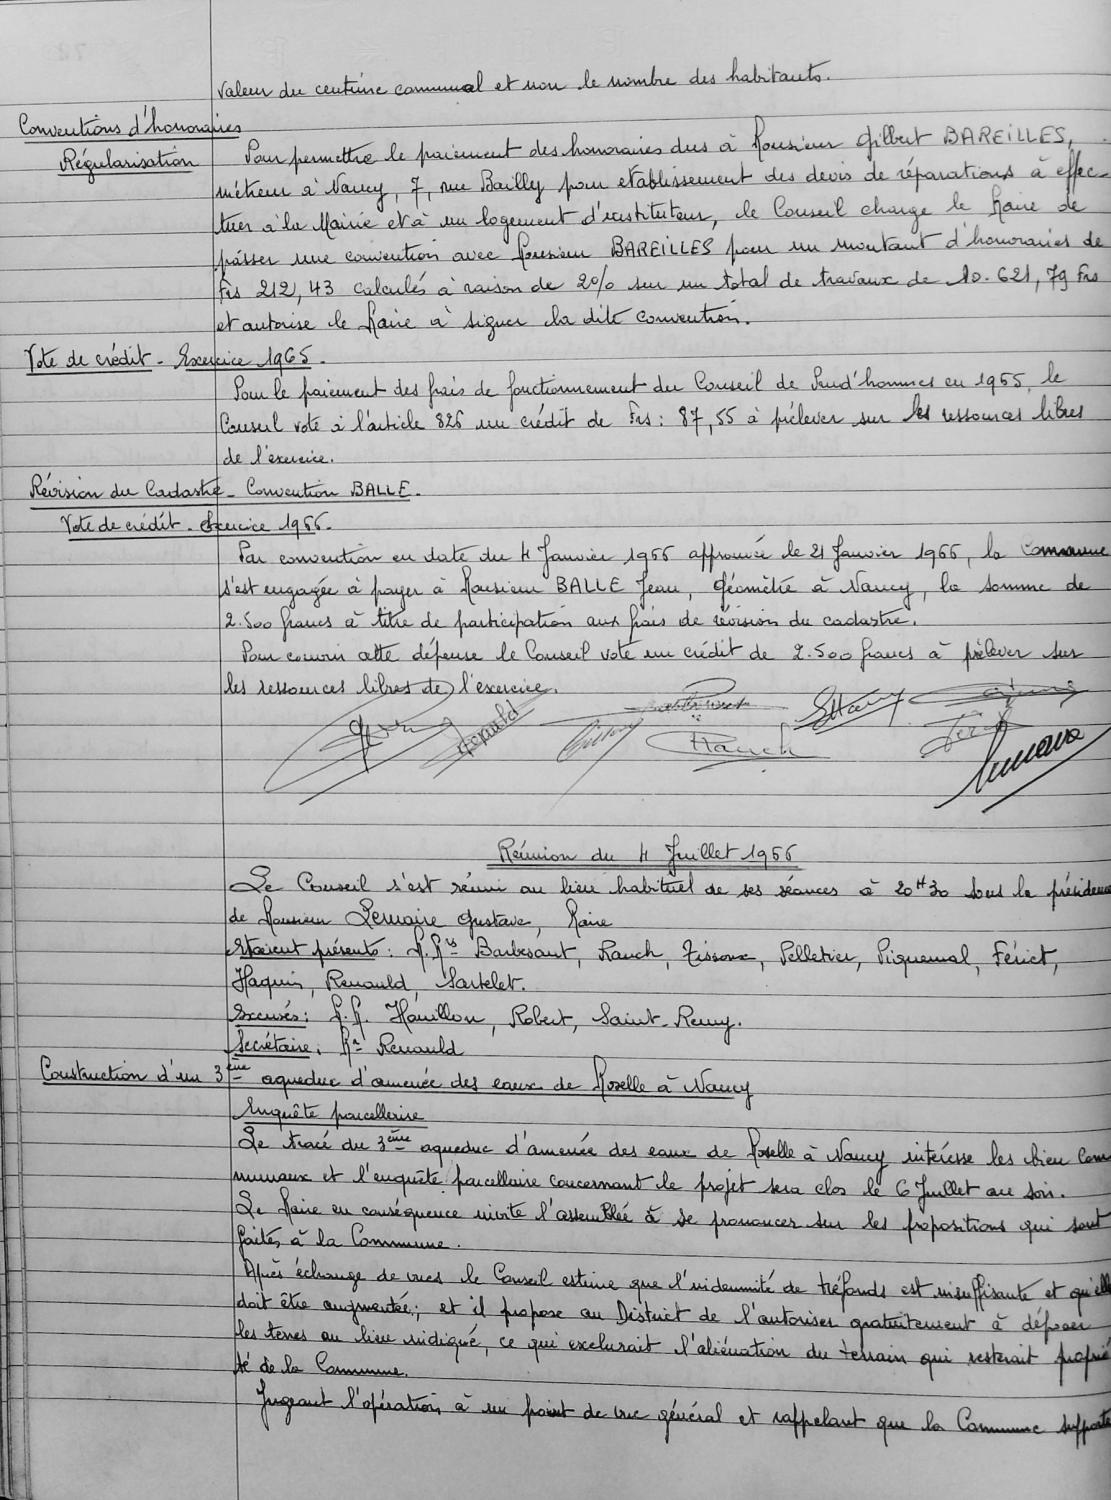 valeur du centime communal et non le nombre des habitants.
Conventions d'honoraires
Régularisation
Pour permettre le paiement des honoraires dus à Monsieur Gilbert BAREILLES,
métreur à Nancy, 7, rue Bailly pour établissement des devis de réparations à effec-
tuer à la Mairie et à un logement d'instituteur, le Conseil charge le Maire de
passer une convention avec Monsieur BAREILLES pour un montant d'honoraires de
Frs 212,43 calculés à raison de 2% sur un total de travaux de 10.621,79 Frs
et autorise le Maire à signer la dite convention.
Vote de crédit - Exercice 1965.
Pour le paiement des frais de fonctionnement du Conseil de Prud'hommes en 1965, le
Conseil vote à l'article 826 un crédit de Frs : 87,55 à prélever sur les ressources libres
de l'exercice.
Révision du Cadastre - Convention BALLE.
Vote de crédit - Exercice 1966.
Par convention en date du 4 Janvier 1966 approuvée le 21 Janvier 1966, la Commune
s'est engagée à payer à Monsieur BALLE Jean, Géomètre à Nancy, la somme de
2.500 francs à titre de participation aux frais de révision du cadastre.
Pour couvrir cette dépense le Conseil vote un crédit de 2.500 francs à prélever sur
les ressources libres de l'exercice.
Renauld
Rauch
Réunion du 4 Juillet 1966
Le Conseil s'est réuni au lieu habituel de ses séances à 20H30 sous la présidence
de Monsieur Lemoine Gustave, Maire
Etaient présents : M.Mrs Barbesant, Rauch, Tissoux, Pelletier, Piquemal, Fériet,
Haquin, Renauld, Sartelet.
Excusés : M.M. Houillon, Robert, Saint-Remy.
Secrétaire : Mr Renauld
Construction d'un 3ème aqueduc d'amenée des eaux de Moselle à Nancy
Enquête parcellerise
Le tracé du 3ème aqueduc d'amenée des eaux de Moselle à Nancy intéresse les bien com
munaux et l'enquête parcellaire concernant le projet sera clos le 6 Juillet au soir.
Le Maire en conséquence invite l'assemblée à se prononcer sur les propositions qui sont
faites à la Commune.
Après échange de vues le Conseil estime que l'indemnité de tréfonds est insuffisante et qu'elle
doit être augmentée ; et il propose au District de l'autoriser gratuitement à déposer
les terres au lieu indiqué, ce qui exclurait l'aliénation du terrain qui resterait proprié
té de la Commune.
Jugeant l'opération à un point de vue général et rappelant que la Commune supporte